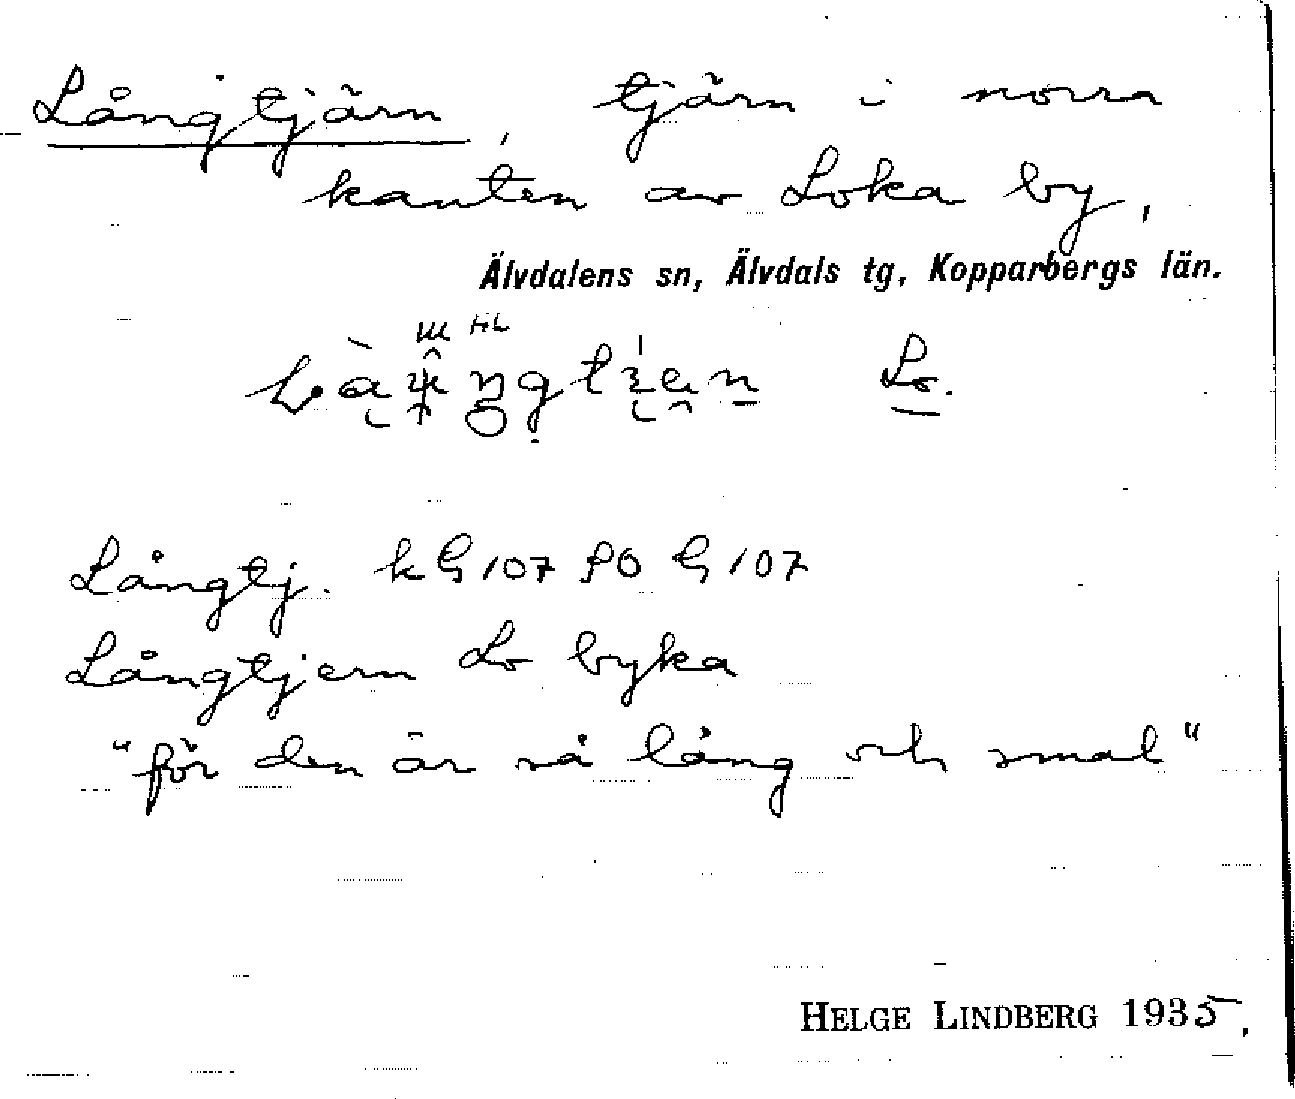 Långtjärn, tjärn i norra
kanten av Loka by,
Älvdalens sn, Älvdals tg, Kopparbergs län.
Lo.
Långtj. k G 107 SO G 107
Långtjern Lo byka
"för den är så lång och smal"
HELGE LINDBERG 1935,